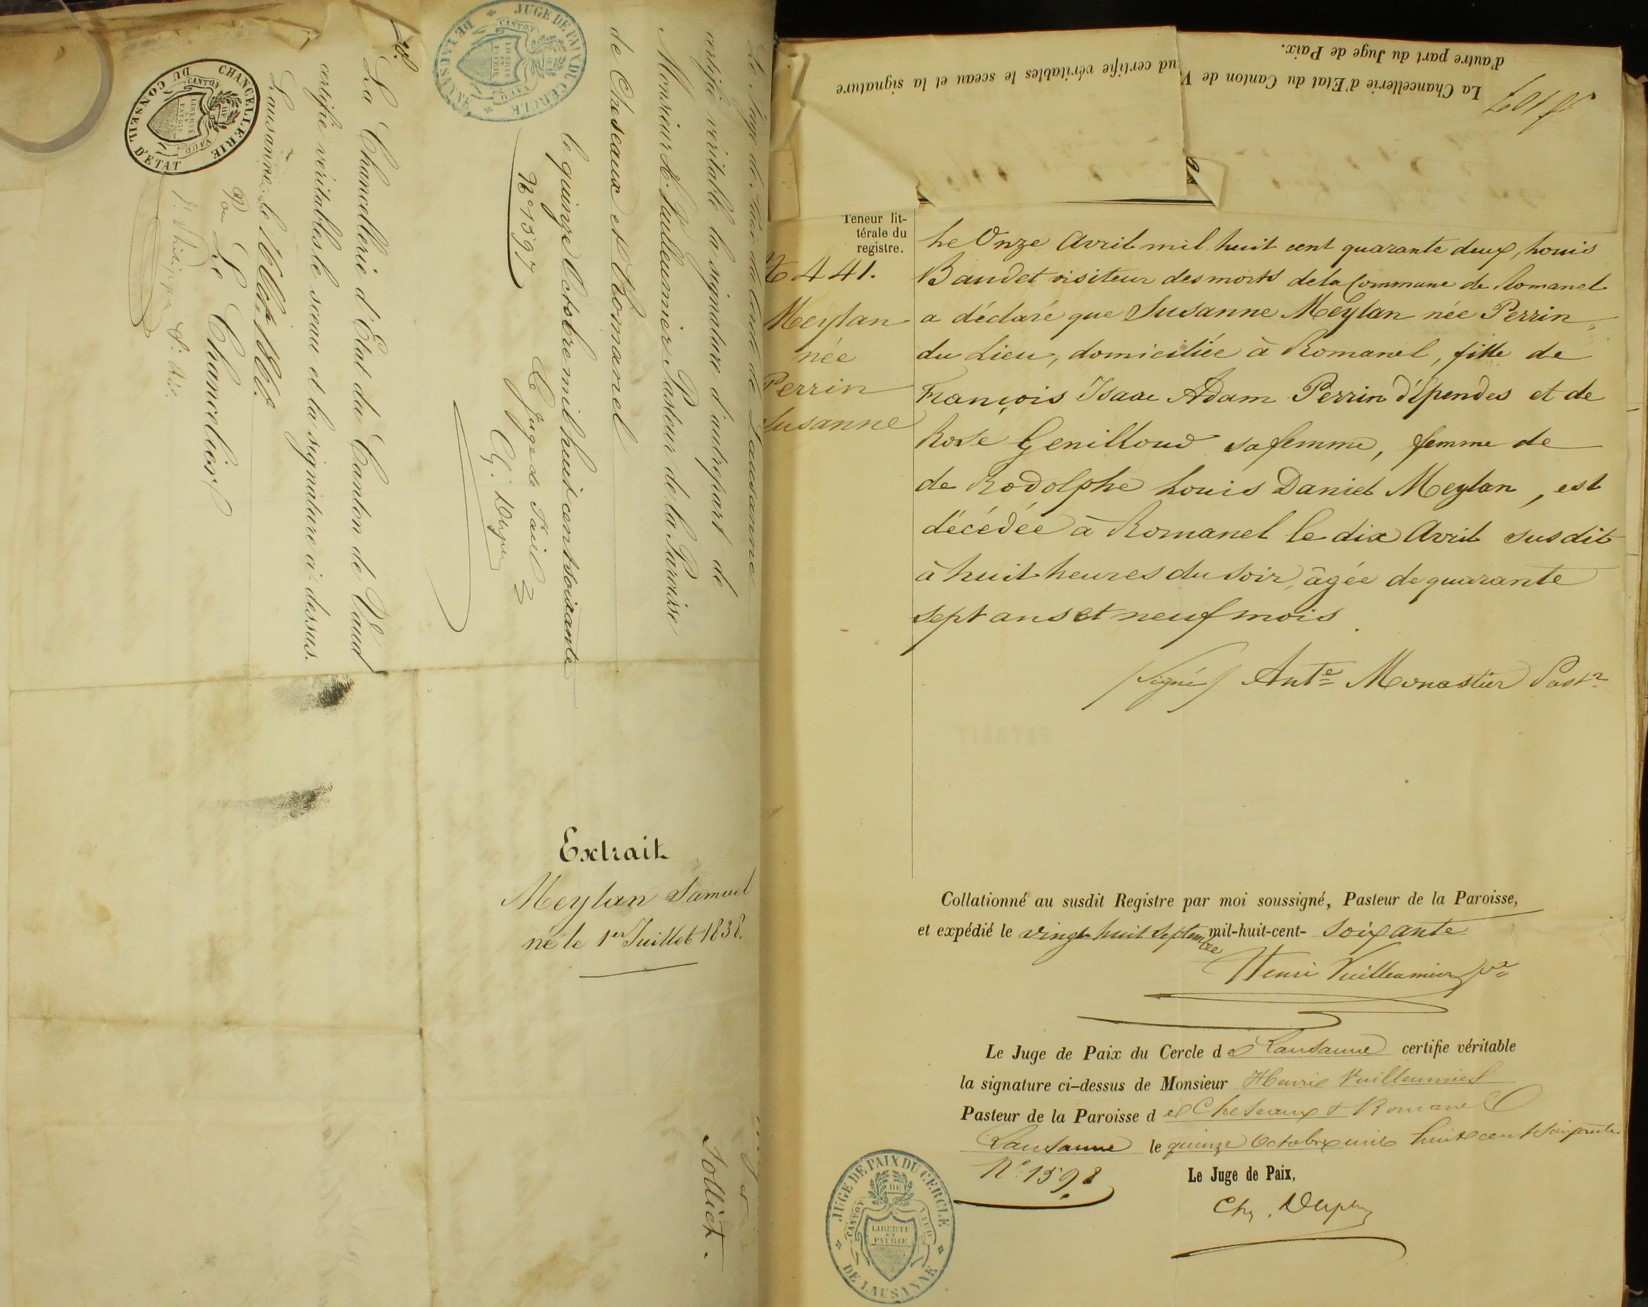 Le Juge de Paix du Cercle de Lausanne
certifie véritable la signature d'autrepart de
Monsieur H. Vuilleumier Pasteur de la Paroisse
de Cheseaux et Romanel
le quinze Octobre mil huit cent soixante
No 1597
Le Juge de Paix
JUGE DE PAIX DU CERCLE
DE LAUSANNE
CANTON DE VAUD
LIBERTÉ ET PATRIE
La Chancellerie d'Etat du Canton de Vaud
certifie véritables le sceau et la signature ci-dessus.
Lausanne, le
Le Chancelier,
CHANCELLERIE
DU CONSEIL D'ETAT
CANTON DE VAUD
Extrait
Meylan Samuel
né le 1er Juillet 1838.
Jolliet.
La Chancellerie d'Etat du Canton de V
ud certifie véritables le sceau et la signature
d'autre part du Juge de Paix.
Teneur lit-
térale du
registre.
No 441.
Meylan
née
Perrin
Susanne
Le Onze Avril mil huit cent quarante deux, Louis
Baudet visiteur des morts de la Commune de Romanel
a déclaré que Susanne Meylan née Perrin,
du Lieu, domiciliée à Romanel, fille de
François Isaac Adam Perrin d'Épendes et de
Rose Genilloud sa femme, femme de
de Rodolphe Louis Daniel Meylan, est
décédée à Romanel le dix Avril susdit
à huit heures du soir, âgée de quarante
sept ans et neuf mois.
/Signé/ Ante Monastier Pastr
Collationné au susdit Registre par moi soussigné, Pasteur de la Paroisse,
et expédié le vingt huit septembre mil-huit-cent- soixante
Henri Vuilleumier pr
Le Juge de Paix du Cercle de Lausanne certifie véritable
la signature ci-dessus de Monsieur Henri Vuilleumier
Pasteur de la Paroisse de Cheseaux & Romanel
Lausanne le quinze Octobre mil huit cent soixante
No 1598
Le Juge de Paix,
JUGE DE PAIX DU CERCLE
DE LAUSANNE
CANTON DE VAUD
LIBERTÉ ET PATRIE